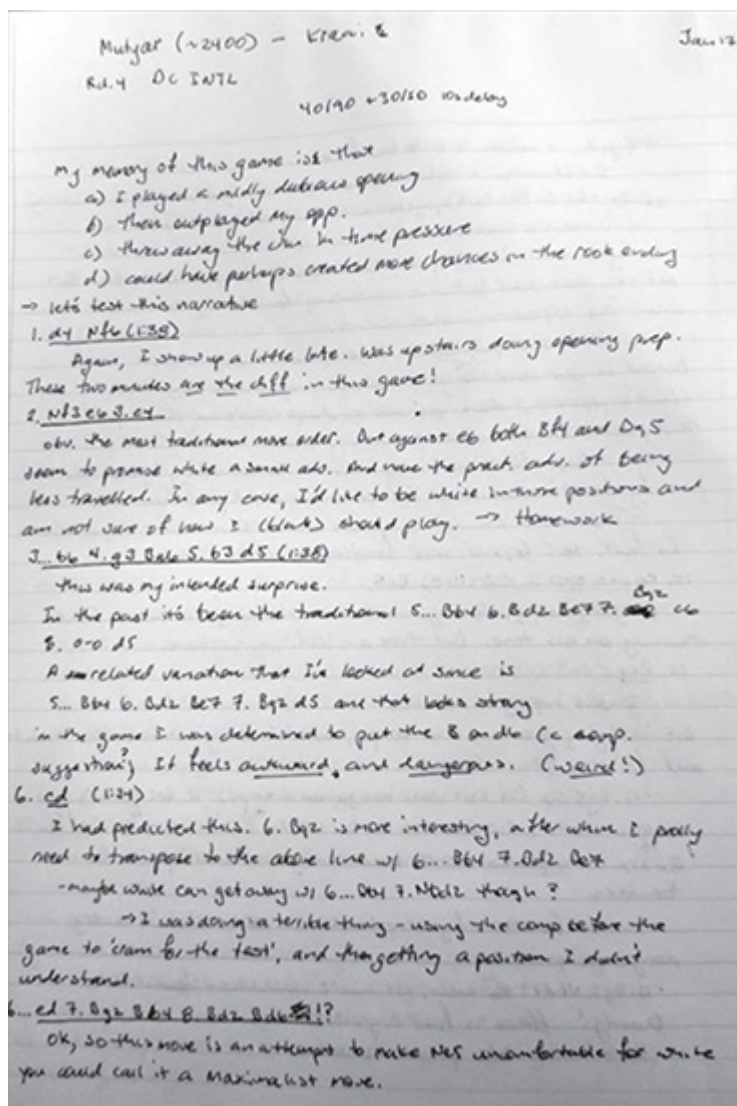 Mutyar (~2400) - Krani
Jan 12
Rd. 4 DC INTL
40/90 + 30/30 10s delay
My memory of this game is that
a) I played a mildly dubious opening
b) then outplayed my opp.
c) threw away the win in time pressure
d) could have perhaps created more chances in the rook ending
→ let's test this narrative
1. d4 Nf6 (1:38)
Again, I show up a little late. Was upstairs doing opening prep.
These two minutes are the diff in this game!
2. Nf3 e6 3. c4
obv. the most traditional move order. But against e6 both Bf4 and Bg5
seem to promise white a small adv. And have the pract. adv. of being
less travelled. In any case, I'd like to be white in those positions and
am not sure of how I (black) should play. → Homework
3... b6 4. g3 Ba6 5. b3 d5 (1:38)
this was my intended surprise.
In the past it's been the traditional 5... Bb4 6. Bd2 Be7 7. Bg2 c6
8. 0-0 d5
A related variation that I've looked at since is
5... Bb4 6. Bd2 Be7 7. Bg2 d5 and that looks strong
in the game I was determined to put the B on d6 (a comp.
suggestion). It feels awkward, and dangerous. (weird!)
6. cd (1:34)
I had predicted this. 6. Bg2 is more interesting, after which I prolly
need to transpose to the above line w/ 6... Bb4 7. Bd2 Be7
- maybe white can get away w/ 6... Bb4 7. Nbd2 though?
→ I was doing a terrible thing - using the comp before the
game to 'cram for the test', and then getting a position I didn't
understand.
6... ed 7. Bg2 Bb4 8. Bd2 Bd6 !?
Ok, so this move is an attempt to make Ne5 uncomfortable for white
you could call it a maximalist move.